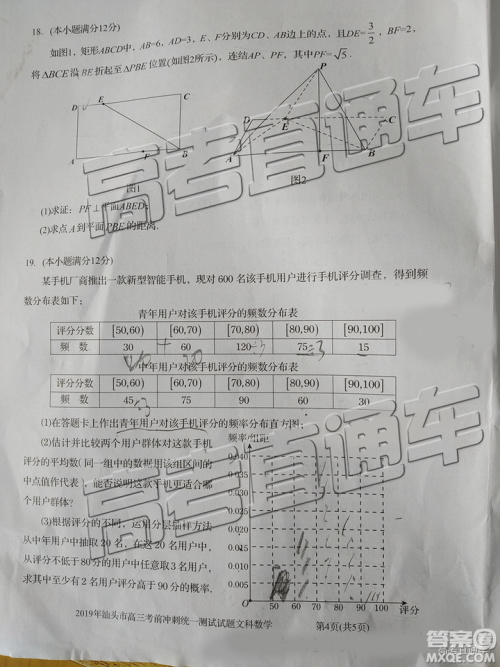 18. (本小题满分12分)
如图1，矩形ABCD中，AB=6，AD=3，E、F分别为CD、AB边上的点，且DE=3/2，BF=2，
将△BCE沿BE折起至△PBE位置(如图2所示)，连结AP、PF，其中PF=√5.
D E C
A F B
图1
P
D E C
A F B
图2
(1)求证：PF⊥平面ABED；
(2)求点A到平面PBE的距离.
19. (本小题满分12分)
某手机厂商推出一款新型智能手机，现对600名该手机用户进行手机评分调查，得到频
数分布表如下：
青年用户对该手机评分的频数分布表
评分分数 [50,60) [60,70) [70,80) [80,90) [90,100]
频 数 30 60 120 75 15
中年用户对该手机评分的频数分布表
评分分数 [50,60) [60,70) [70,80) [80,90) [90,100]
频 数 45 75 90 60 30
(1)在答题卡上作出青年用户对该手机评分的频率分布直方图；
(2)估计并比较两个用户群体对这款手机
评分的平均数(同一组中的数据用该组区间的
中点值作代表)，能否说明这款手机更适合哪
个用户群体?
(3)根据评分的不同，运用分层抽样方法
从中年用户中抽取20名，在这20名用户中，
从评分不低于80分的用户中任意取3名用户，
求其中至少有2名用户评分高于90分的概率.
频率/组距
0.040
0.035
0.030
0.025
0.020
0.015
0.010
0.005
0 50 60 70 80 90 100 评分
2019年汕头市高三考前冲刺统一测试试题文科数学 第4页(共5页)
高考直通车
高考直通车
答案圈
MXQE.COM